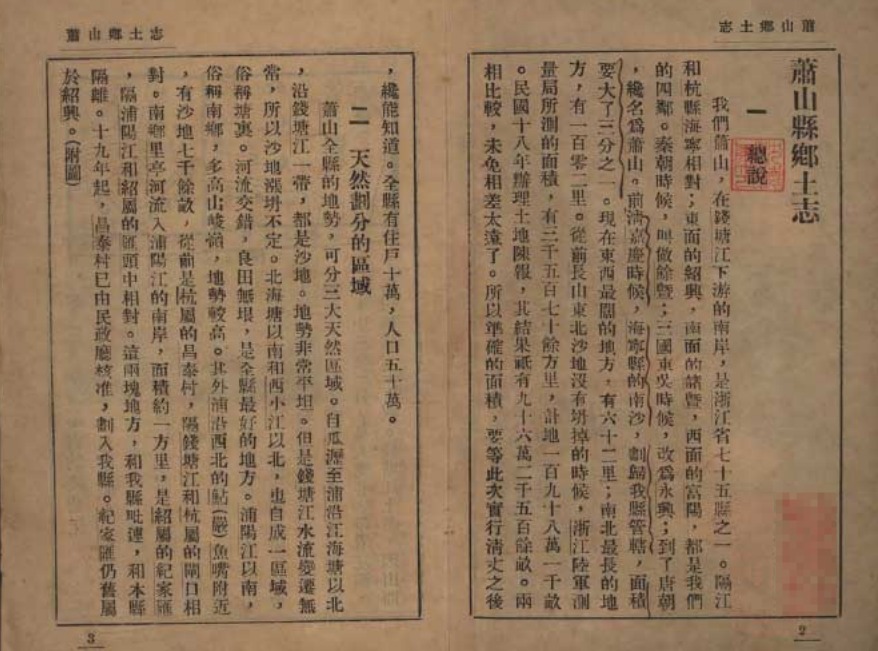 蕭山鄉土志
蕭山縣鄉土志
一 總說
我們蕭山，在錢塘江下游的南岸，是浙江省七十五縣之一。隔江
和杭縣海寧相對；東面的紹興，南面的諸暨，西面的富陽，都是我們
的四鄰。秦朝時候，叫做餘暨；三國東吳時候，改爲永興；到了唐朝
，纔名爲蕭山。前淸嘉慶時候，海寧縣的南沙，劃歸我縣管轄，面積
要大了三分之一。現在東西最闊的地方，有六十二里；南北最長的地
方，有一百零二里。從前長山東北沙地沒有坍掉的時候，浙江陸軍測
量局所測的面積，有三千五百七十餘方里，計地一百九十八萬一千畝
。民國十八年辦理土地陳報，其結果祇有九十六萬二千五百餘畝。兩
相比較，未免相差太遠了。所以準確的面積，要等此次實行淸丈之後
2
蕭山鄉土志
，纔能知道。全縣有住戶十萬，人口五十萬。
二 天然劃分的區域
蕭山全縣的地勢，可分三大天然區域。自瓜瀝至浦沿江海塘以北
，沿錢塘江一帶，都是沙地。地勢非常平坦。但是錢塘江水流變遷無
常，所以沙地漲坍不定。北海塘以南和西小江以北，也自成一區域，
俗稱塘裏。河流交錯，良田無垠，是全縣最好的地方。浦陽江以南，
俗稱南鄉，多高山峻嶺，地勢較高。其外浦沿西北的鮎(嚴)魚嘴附近
，有沙地七千餘畝，從前是杭屬的昌泰村，隔錢塘江和杭屬的閘口相
對。南鄉里亭河流入浦陽江的南岸，面積約一方里，是紹屬的紀家匯
，隔浦陽江和紹屬的匯頭中相對。這兩塊地方，和我縣毗連，和本縣
隔離。十九年起，昌泰村已由民政廳核准，劃入我縣。紀家匯仍舊屬
於紹興。(附圖)
3